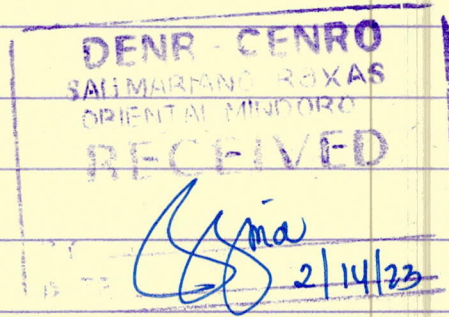 DENR - CENRO
SAN MARIANO ROXAS
ORIENTAL MINDORO
RECEIVED
2/14/23